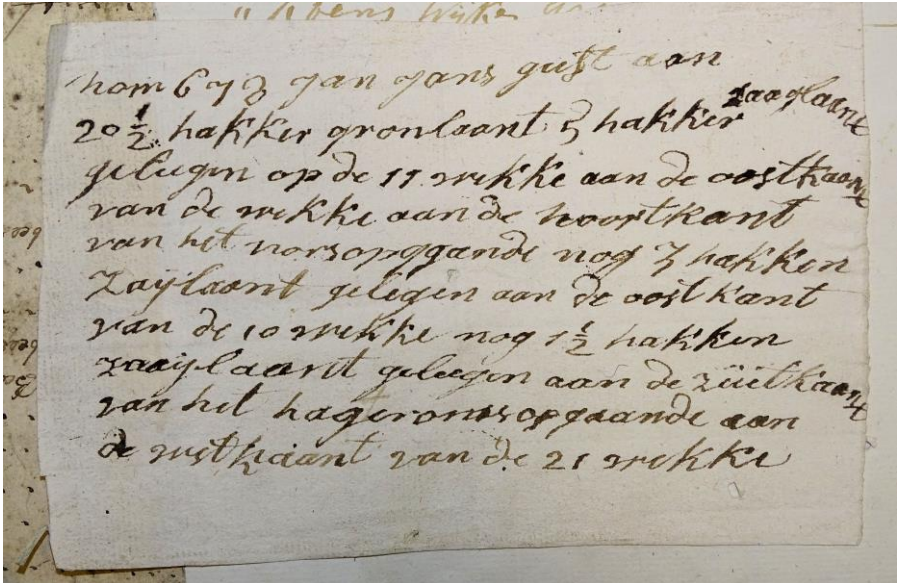 nom 673 Jan Jans geist aan
20 1/2 hakker gronlaant 3 hakker zaaylaant
gelegen op de 11 wikke aan de oostkaant
van de wikke aan de noortkant
van het norsopggande nog 3 hakken
Zaijlaant gelegen aan de oostkant
van de 10 wikke nog 1 1/2 hakken
zaaijlaant gelegen aan de züitkaant
van het opgaande aan
de westkaant van de 21 wikke